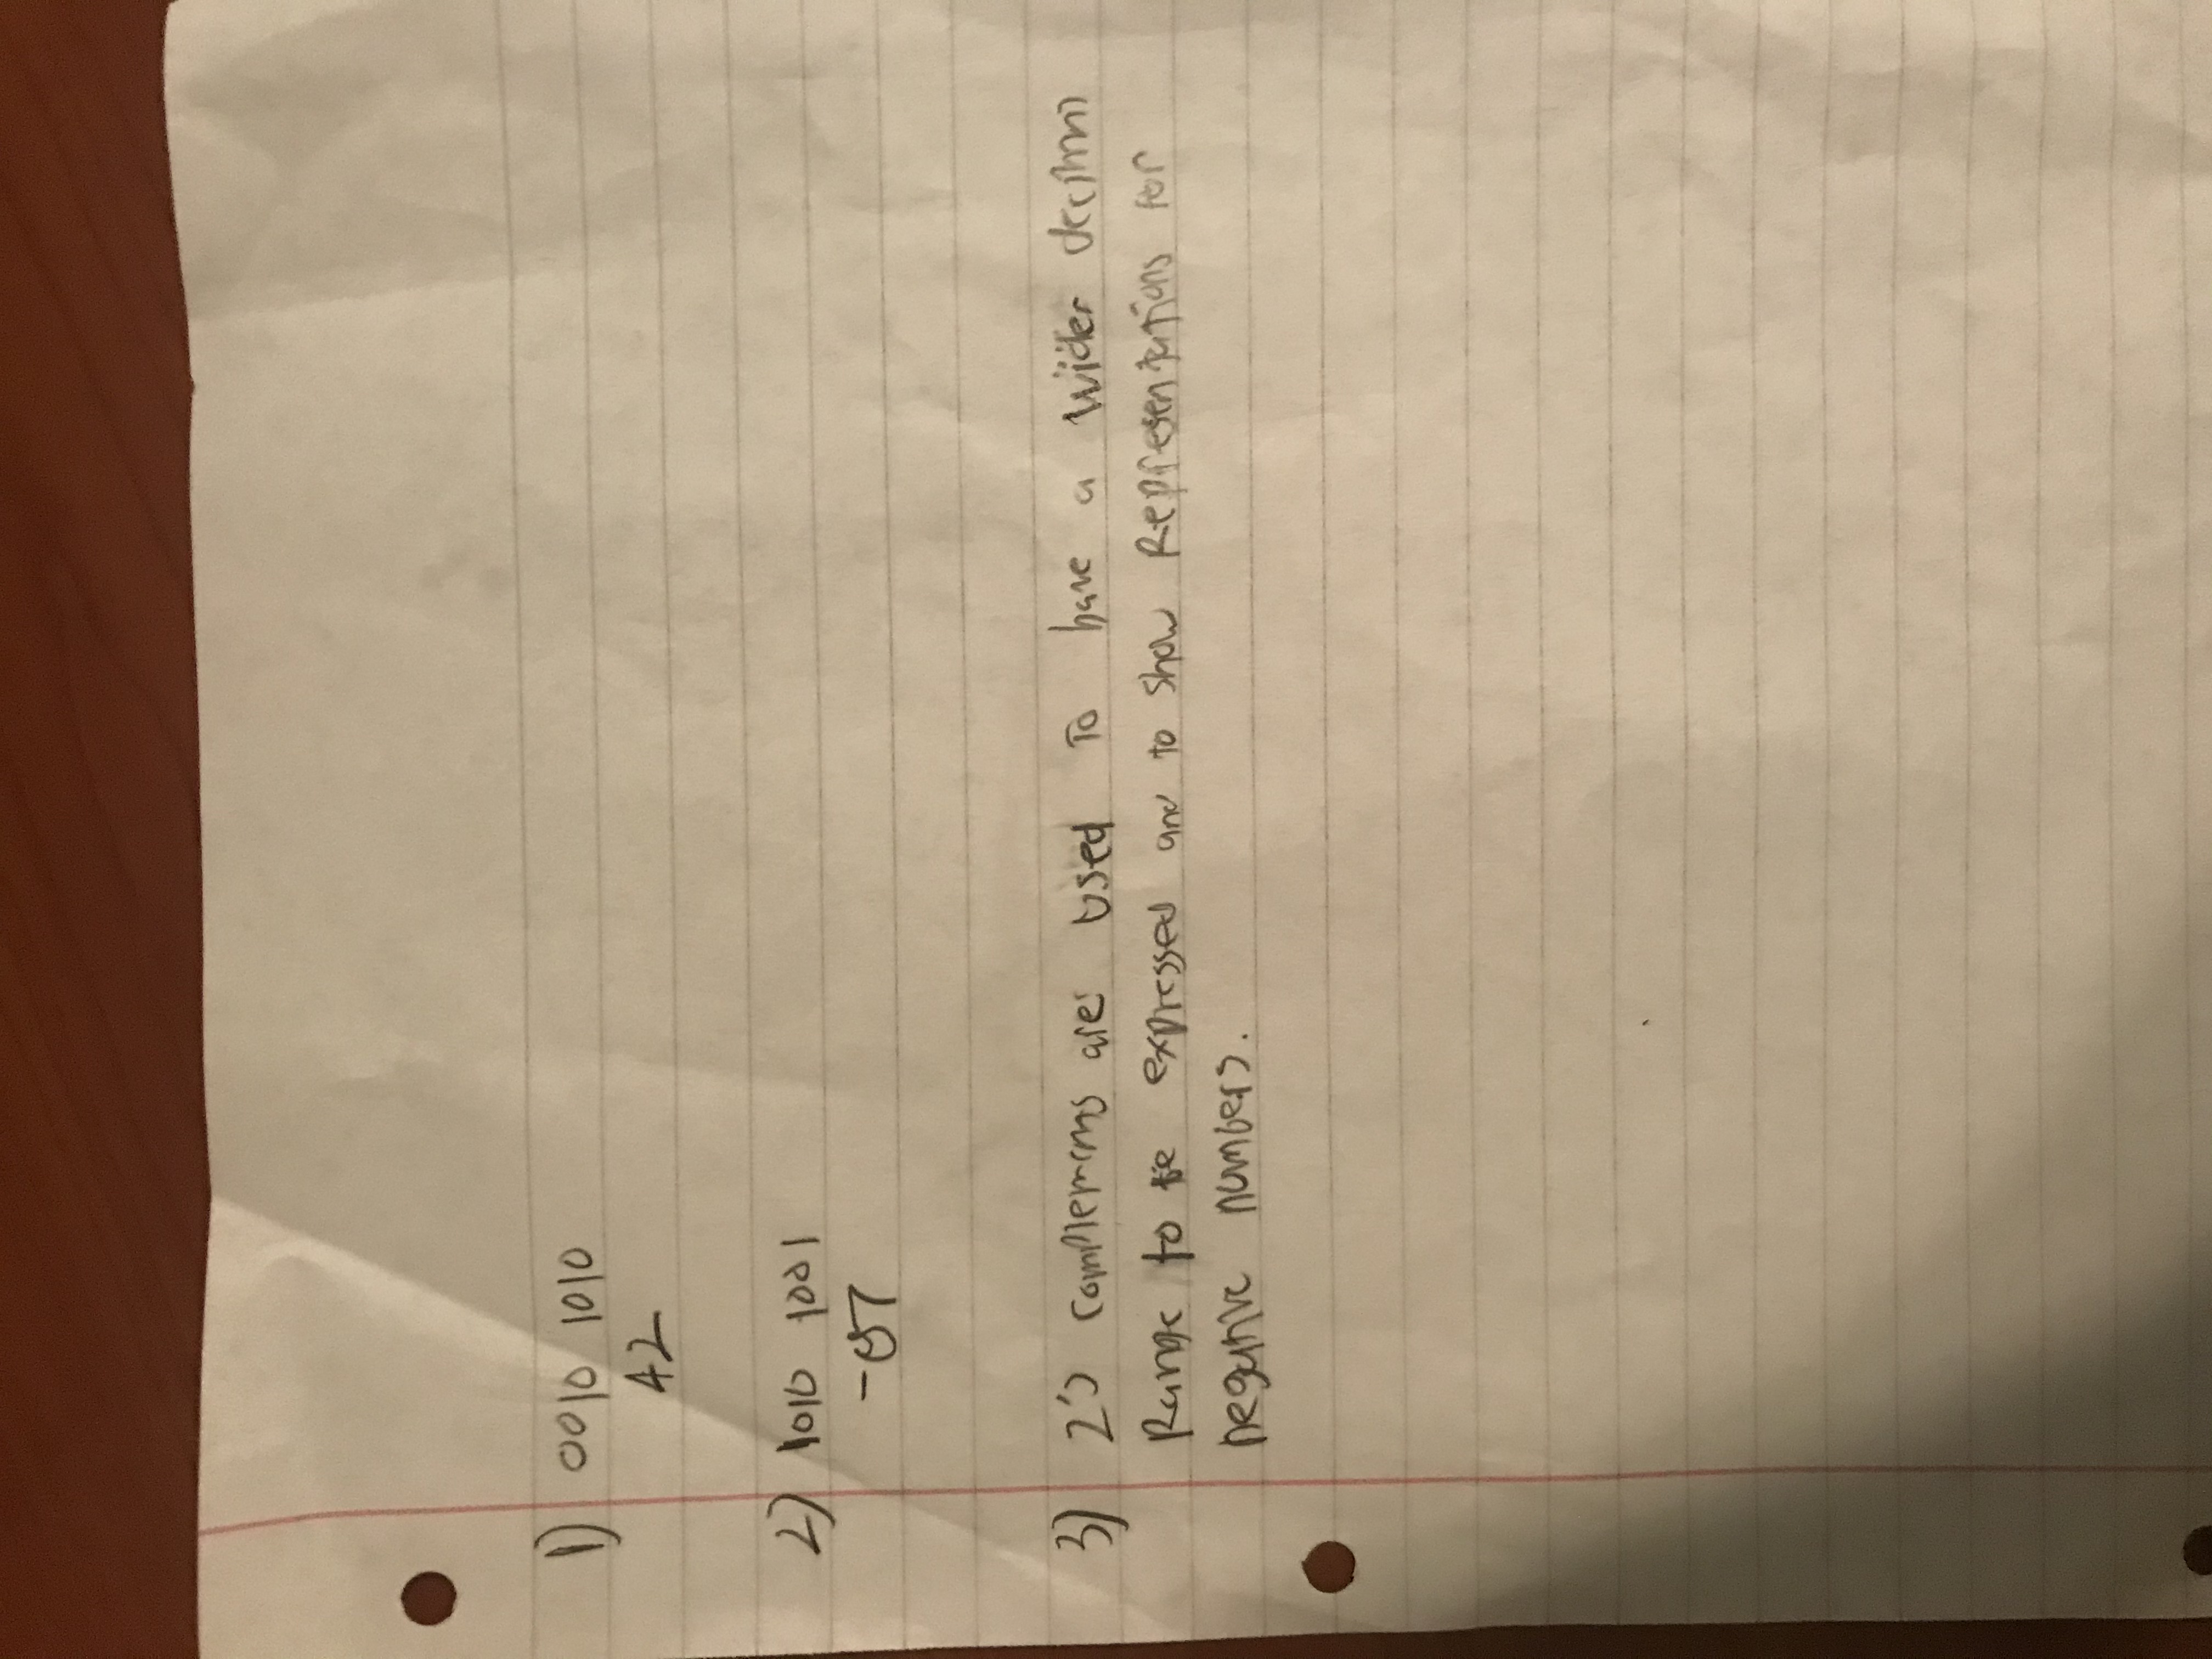 1) 0010 1010
42
2) 1010 1001
-87
3) 2's complements are used to have a wider decimal
Range to be expressed and to show Representations for
negative numbers.